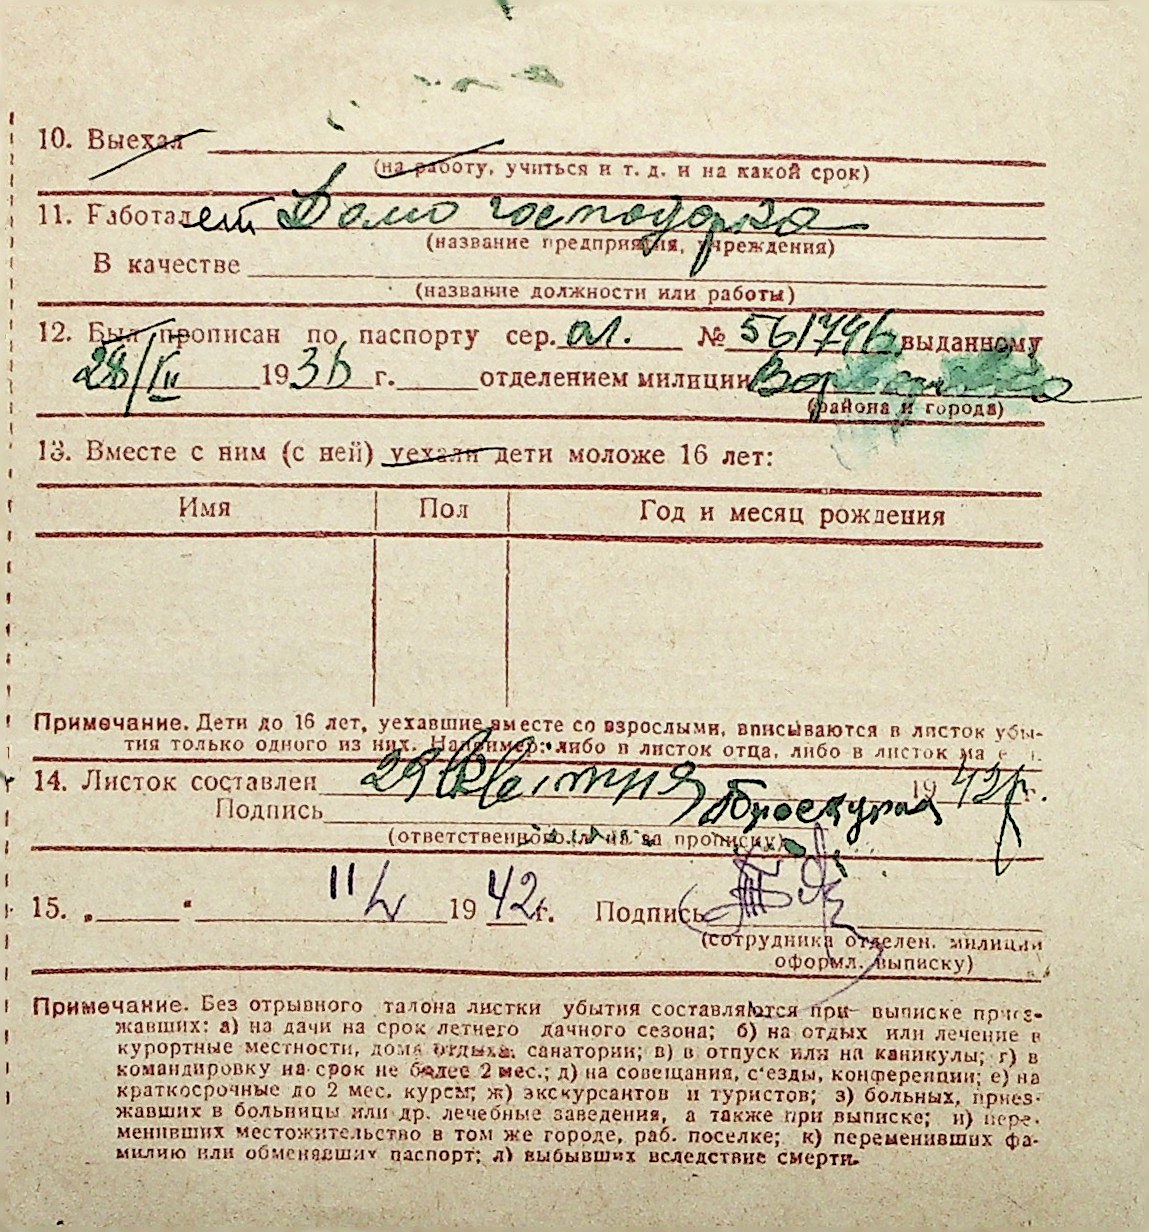 10. Выехал
(на работу, учиться и т. д. и на какой срок)
11. Работает Домо господарка
(название предприятия, учреждения)
В качестве
(название должности или работы)
12. Был прописан по паспорту сер. ол. № 561746 выданному
28/III 1936 г. отделением милиции
(района и города)
13. Вместе с ним (с ней) уехали дети моложе 16 лет:
Имя Пол Год и месяц рождения
Примечание. Дети до 16 лет, уехавшие вместе со взрослыми, вписываются в листок убы-
тия только одного из них. Например: либо в листок отца, либо в листок ма
14. Листок составлен 29 Квітня 1942 г.
Подпись
(ответственного за прописку)
15. „ “ 11/V 1942 г. Подпись
(сотрудника отделен. милиции
оформл. выписку)
Примечание. Без отрывного талона листки убытия составляются при выписке приез-
жавших: а) на дачи на срок летнего дачного сезона; б) на отдых или лечение в
курортные местности, дома отдыха, санатории; в) в отпуск или на каникулы; г) в
командировку на срок не более 2 мес.; д) на совещания, с'езды, конференции; е) на
краткосрочные до 2 мес. курсы; ж) экскурсантов и туристов; з) больных, приез-
жавших в больницы или др. лечебные заведения, а также при выписке; и) пере-
менивших местожительство в том же городе, раб. поселке; к) переменивших фа-
милию или обменявших паспорт; л) выбывших вследствие смерти.